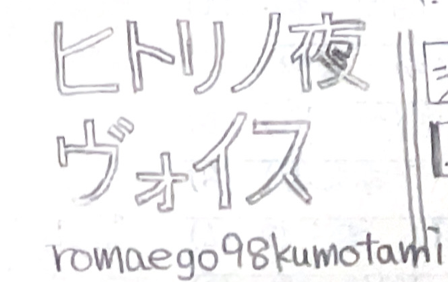 ヒトリノ夜
ヴォイス
romaego98kumotami